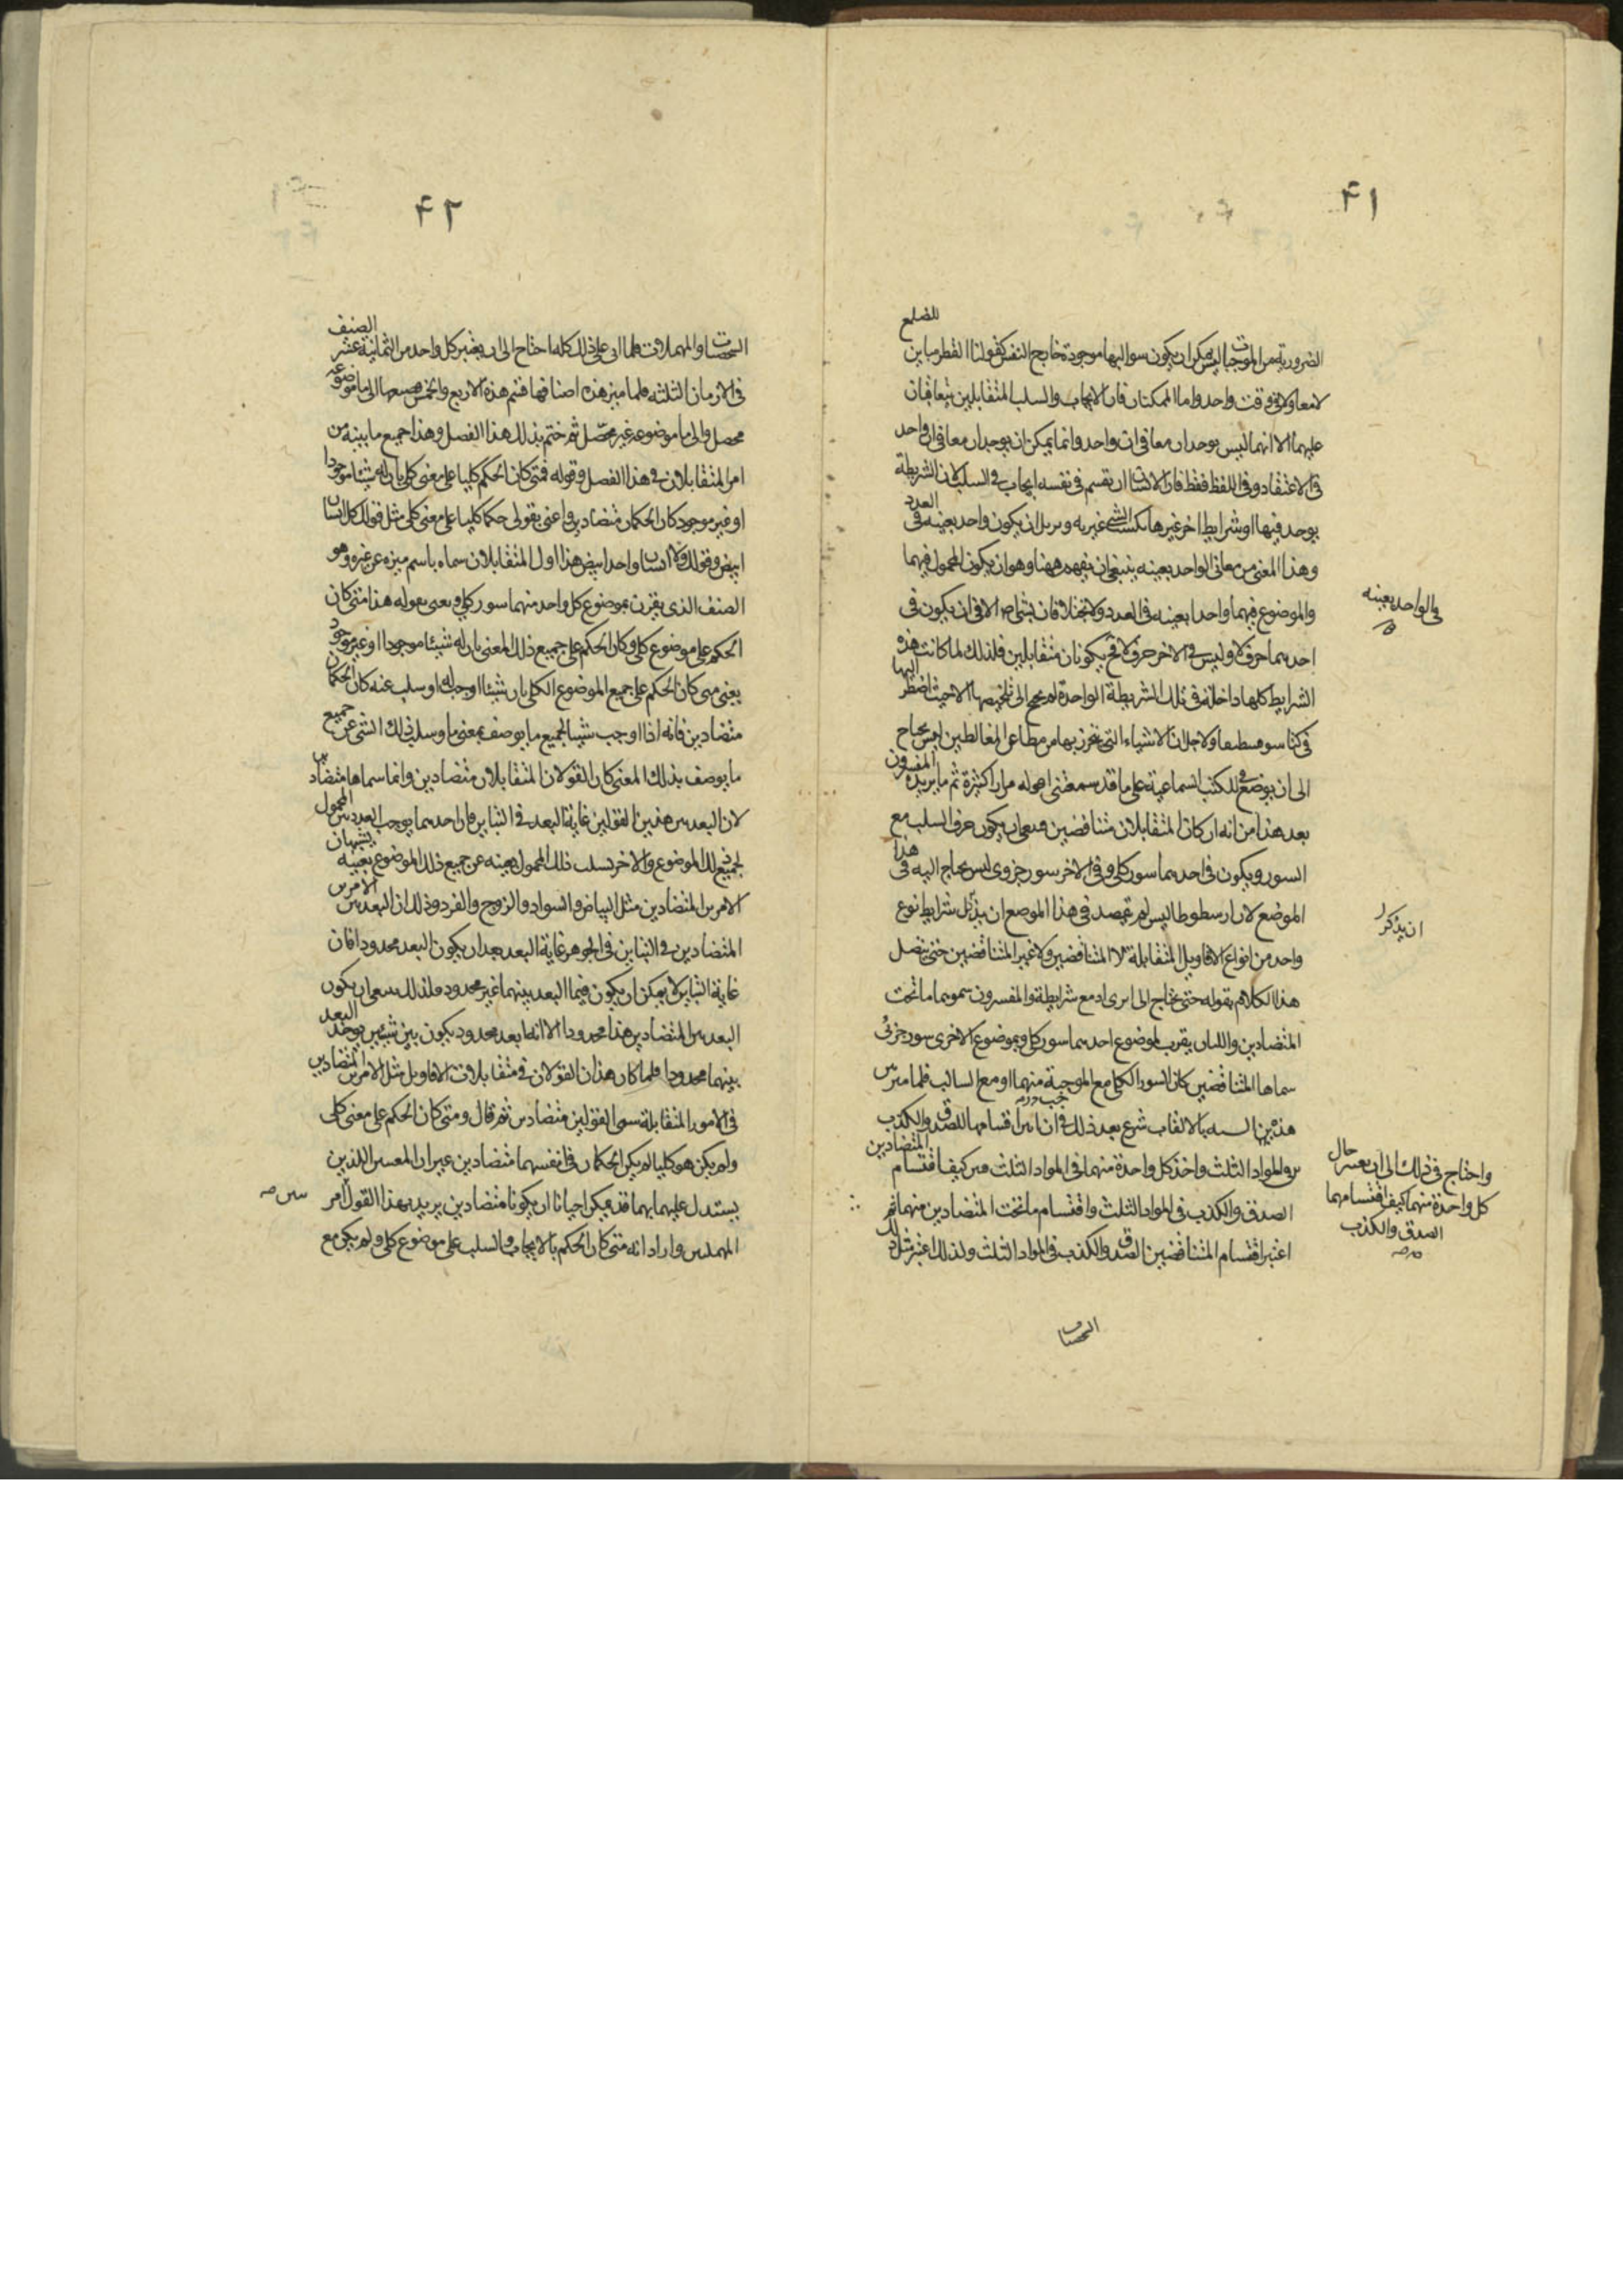 ٤١
للضلع
الضرورية من الموجبات ليس يمكن ان يكون سوالبها موجودة خارج النفس كقولنا القطر مباين
لا معا ولا فى وقت واحد واما الممكنتان فان الايجاب والسلب المتقابلين يتعاقبان
عليهما الا انهما ليس يوجدان معا فى ان واحد وانما يمكن ان يوجدان معا فى ان واحد
فى الاعتقاد وفى اللفظ فقط فان الانسان ان يقسم فى نفسه ايجاب فى السلب لان الشريطة
يوجد فيها او شرايط اخر غيرها الشىء غيريه و ان يكون واحد بعينه فى العدد
وهذا المعنى من معانى الواحد بعينه ينبغى ان يفهم ههنا وهو ان يكون المحمول فيهما
والموضوع فيهما واحدا بعينه فى العدد ولا يختلافان بشىء الا فى ان يكون فى
احدهما حرف لا وليس فى الاخر حرف لا فح يكونان متقابلين فلذلك لما كانت هذه
الشرايط كلها داخلة فى تلك الشريطة الواحدة لم يحتج الى تلخيصها الا حيث اضطر اليها
فى كتاب سوفسطيقا ولا جل ان الاشياء التى يتحرز بها من مطاعن المغالطين ليس يحتاج
الى ان يوضع فى الكتب السماعية على ما قد سمعتنى اقوله مرارا كثيرة ثم ما يريده المفسرون
بعد هذا من انه ان كان المتقابلان متناقضين فينبغى ان يكون حرف السلب مع
السور ويكون فى احدهما سور كلى وفى الاخر سور جزوى ليس يحتاج اليه فى هذا
الموضع لان ارسطوطاليس لم يقصد فى هذا الموضع ان شرايط نوع
واحد من انواع الاقاويل المتقابلة لا المتناقضين ولا غير المتناقضين حتى يتصل
هذا الكلام بقوله حتى يحتاج الى ايراد مع شرايطه والمفسرون سموهما ما تحت
المتضادين واللذان يقرن بموضوع احدهما سور كلى وبموضوع الاخرى سور جزئى
سماها المتناقضين كان السور الكلى مع الموجبة منهما او مع السالب فلما ميز
هذه بالالقاب شرع بعد ذلك فى ان اقسامها للصدق والكذب
فى المواد الثلث واخذ كل واحدة منهما فى المواد الثلث فبين كيف اقتسام المتضادين
الصدق والكذب فى المواد الثلث واقتسام ما تحت المتضادين منهما ثم
اعتبر اقتسام المتناقضين الصدق والكذب فى المواد الثلث ولذلك اعتبر تلك
فى الواحد بعينه
ان يذكر
واحتاج فى ذلك الى ان يعتبر حال
كل واحدة منهما كيف اقتسامهما
الصدق والكذب
الشخصيات
٤٢
الشخصيات والمهملات فلما اتى على ذلك كله احتاج الى ان يعتبر كل واحد من الثمانية عشر الصنف
فى الازمان الثلثه فلما ميز هذه اصنافها قسم هذه الاربع والخمسين الى ما موضوعه
محصل والى ما موضوعه غير محصل ثم ختم بذلك هذا الفصل وهذا جميع ما بينه من
امر المتقابلان فى هذا الفصل وقوله فمتى كان الحكم كليا على معنى كلى بان له شيئا موجودا
او غير موجود كان الحكمان متضادين واعنى بقولى حكما كليا على معنى كلى مثل قولك كل انسان
ابيض وقولك ولا انسان واحد ابيض هذا اول المتقابلان سماه باسم ميزه عن غيره وهو
الصنف الذى يقرن بموضوع كل واحد منهما سور كلى ويعنى بقوله هذا متى كان
الحكم على موضوع كلى وكان الحكم على جميع ذلك المعنى بان له شيئا موجودا او غير موجود
يعنى متى كان الحكم على جميع الموضوع الكلى بان شيئا اوجب له او سلب عنه كان الحكمان
متضادين فانه اذا اوجب شيئا لجميع ما يوصف بمعنى ما وسلب ذلك الشىء عن جميع
ما يوصف بذلك المعنى كان القولان المتقابلان متضادين وانما سماها متضادين
لان البعد بين هذين القولين غاية البعد فى التباين فان احدهما يوجب المحمول
لجميع ذلك الموضوع والاخر يسلب ذلك المحمول بعينه عن جميع ذلك الموضوع بعينه يشبهان
الامرين المتضادين مثل البياض والسواد والزوج والفرد وذلك ان البعد بين الامرين
المتضادين فى التباين فى الجوهر غاية البعد بعد ان يكون البعد محدودا فان
غاية التباين لا يمكن ان يكون فيما البعد بينهما غير محدود فلذلك ينبغى ان يكون
البعد بين المتضادين هذا محدودا الا انه بعد محدود يكون بين شيئين يوجد البعد
بينهما محدودا فلما كان هذان القولان فى متقابلات الاقاويل مثل الامرين المتضادين
فى الامور المتقابلة سمى القولين متضادين ثم قال ومتى كان الحكم على معنى كلى
ولم يكن هو كليا لم يكن الحكمان فى انفسهما متضادين غير ان المعنيين اللذين
يستدل عليهما بهما قد يمكن احيانا ان يكونا متضادين يريد بهذا القول امر
المهملين واراد انه متى كان الحكم بالايجاب والسلب على موضوع كلى ولم يكن مع